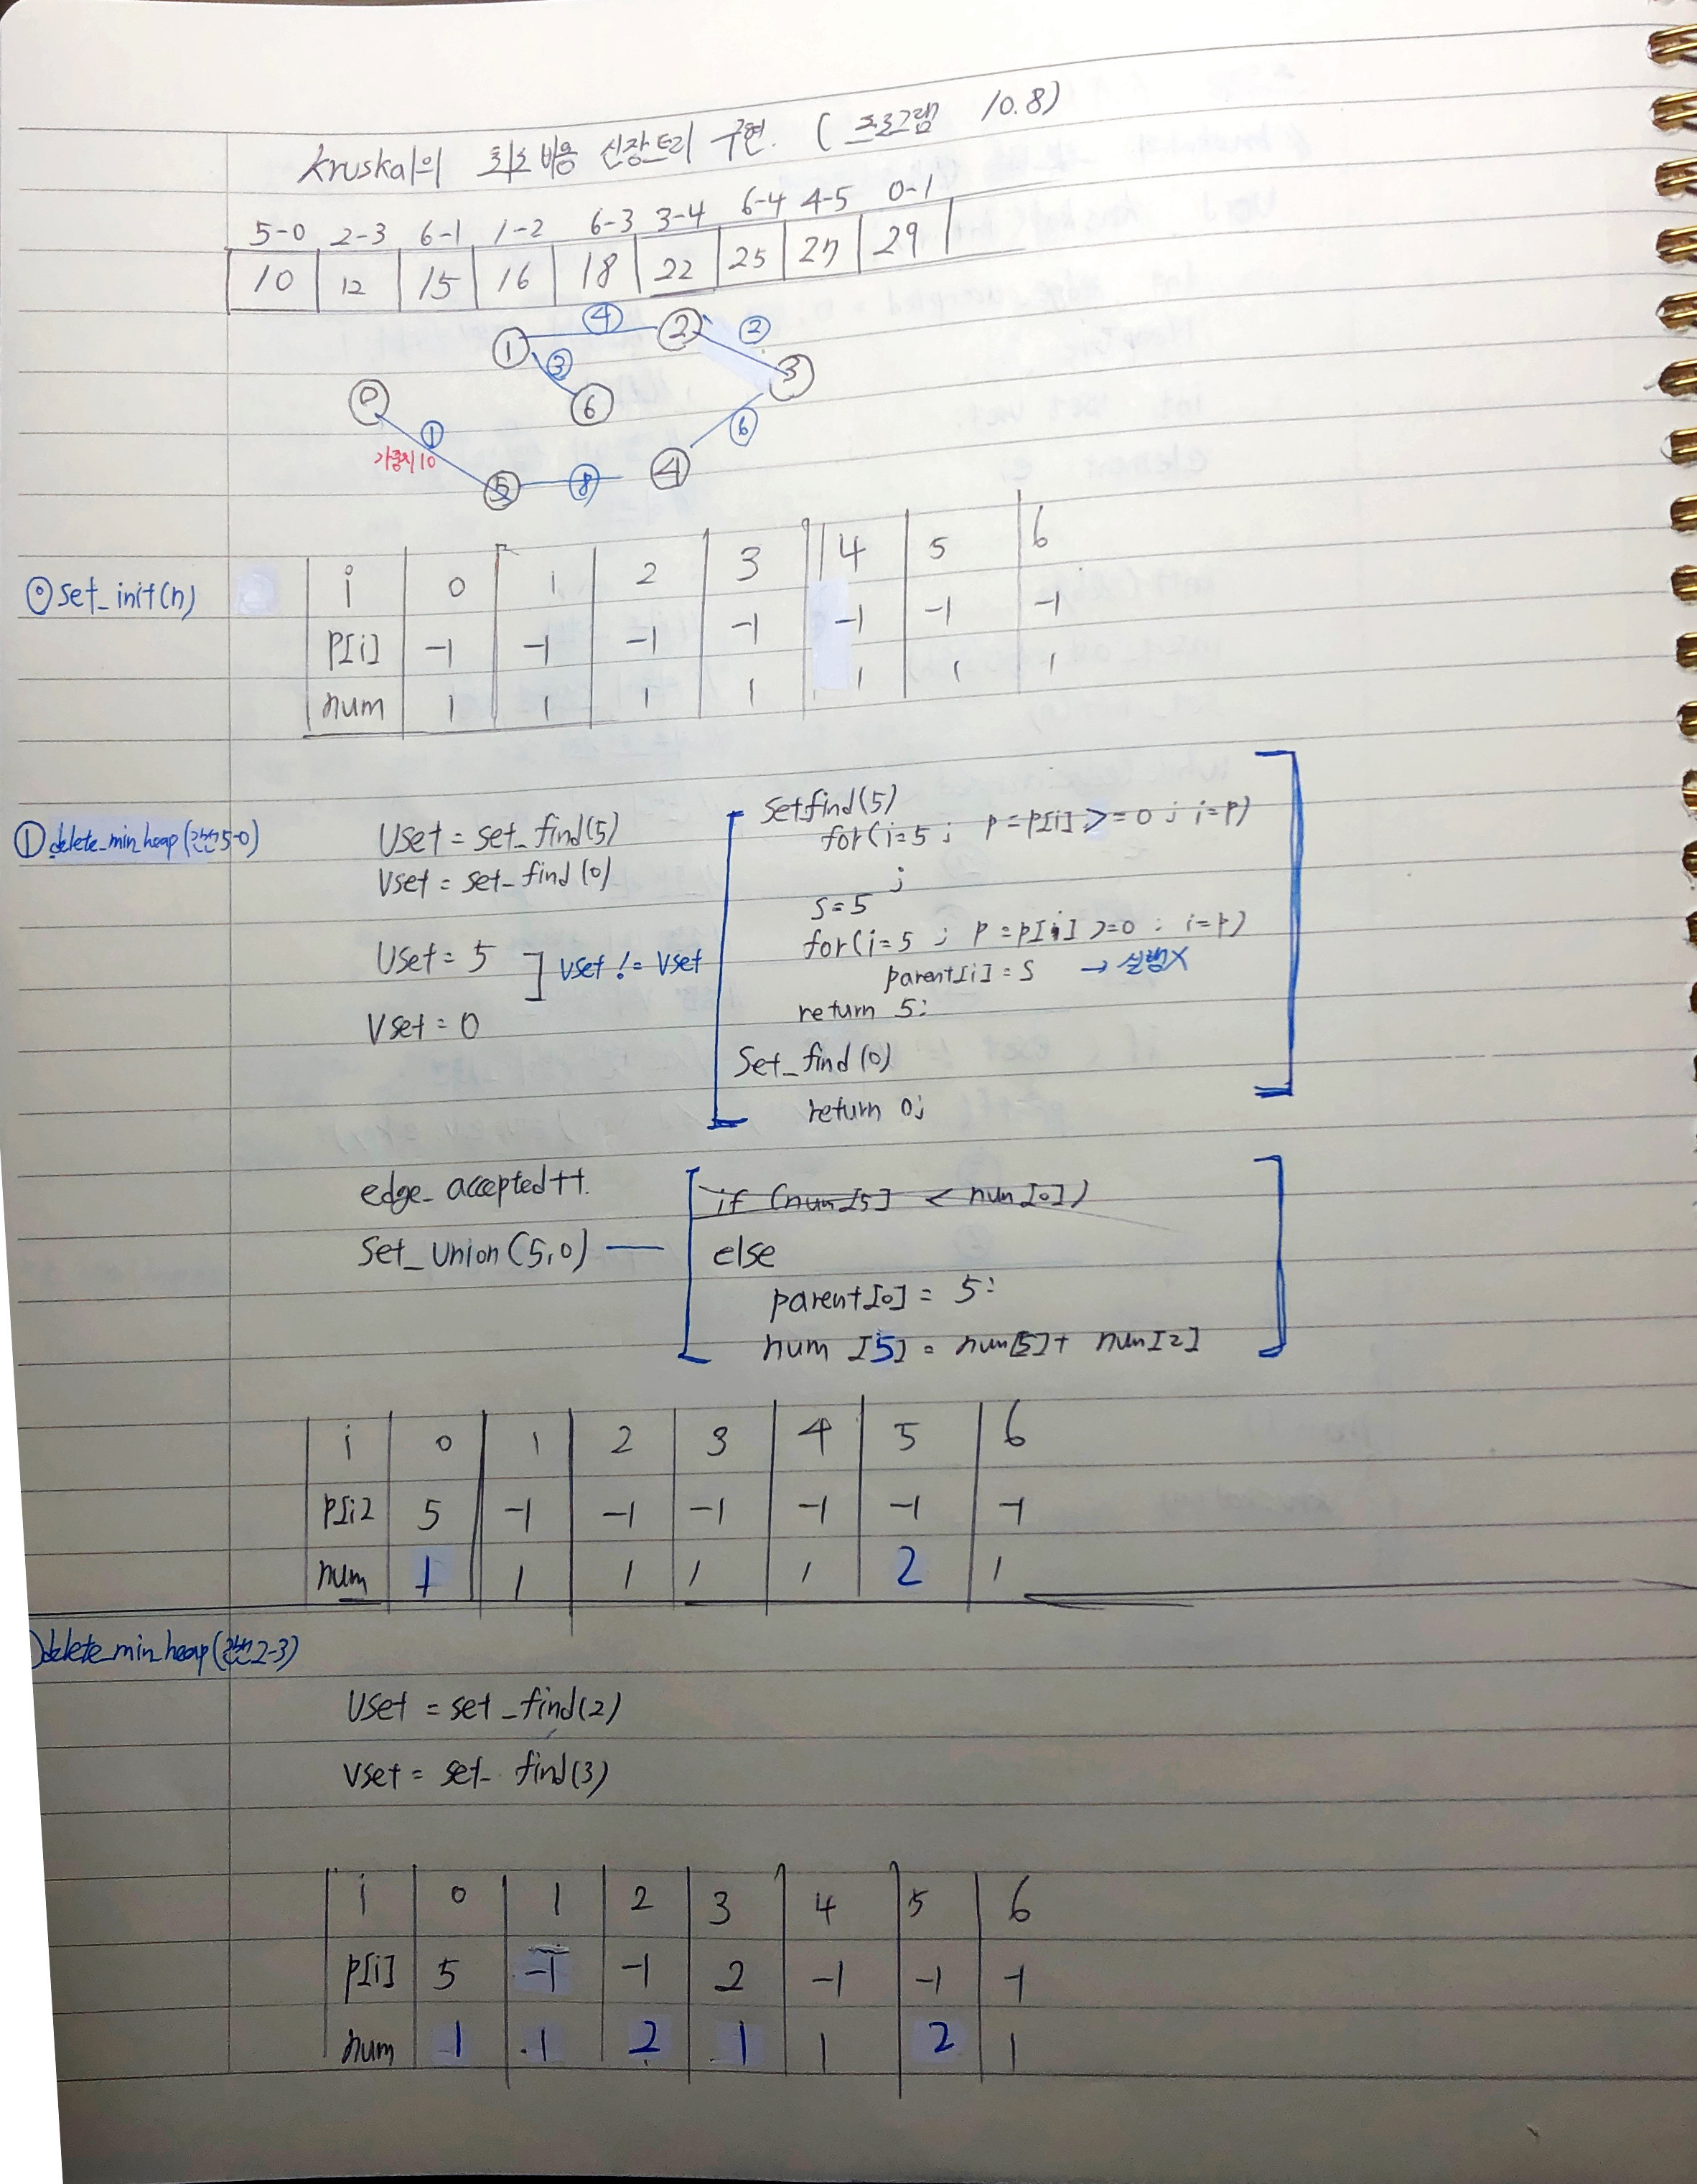 kruskal의 최소 비용 신장트리 구현. ( 프로그램 10.8)
5-0 2-3 6-1 1-2 6-3 3-4 6-4 4-5 0-1
10 12 15 16 18 22 25 27 29
④ ②
1 2
③ 3
0 6
① ⑥
가중치10 4
5 ⑧
⓪ set_init(n)
i 0 1 2 3 4 5 6
P[i] -1 -1 -1 -1 -1 -1 -1
num 1 1 1 1 1 1 1
① delete_min_heap(간선5-0)
Uset = set_find(5)
Vset = set_find(0)
Uset = 5
Vset = 0
Vset != Vset
Setfind(5)
for(i=5 ; P=P[i] >=0 ; i=P)
;
S=5
for(i=5 ; P=P[i] >=0 ; i=P)
parent[i] = S → 실행X
return 5;
Set_find(0)
return 0;
edge_accepted++.
Set_Union(5,0) —
if (num[5] < num[0])
else
parent[0] = 5;
num [5] = num[5]+ num[2]
i 0 1 2 3 4 5 6
P[i] 5 -1 -1 -1 -1 -1 -1
num 1 1 1 1 1 2 1
)delete_min_heap(간선2-3)
Uset = set_find(2)
Vset = set_find(3)
i 0 1 2 3 4 5 6
P[i] 5 -1 -1 2 -1 -1 -1
num 1 1 2 1 1 2 1